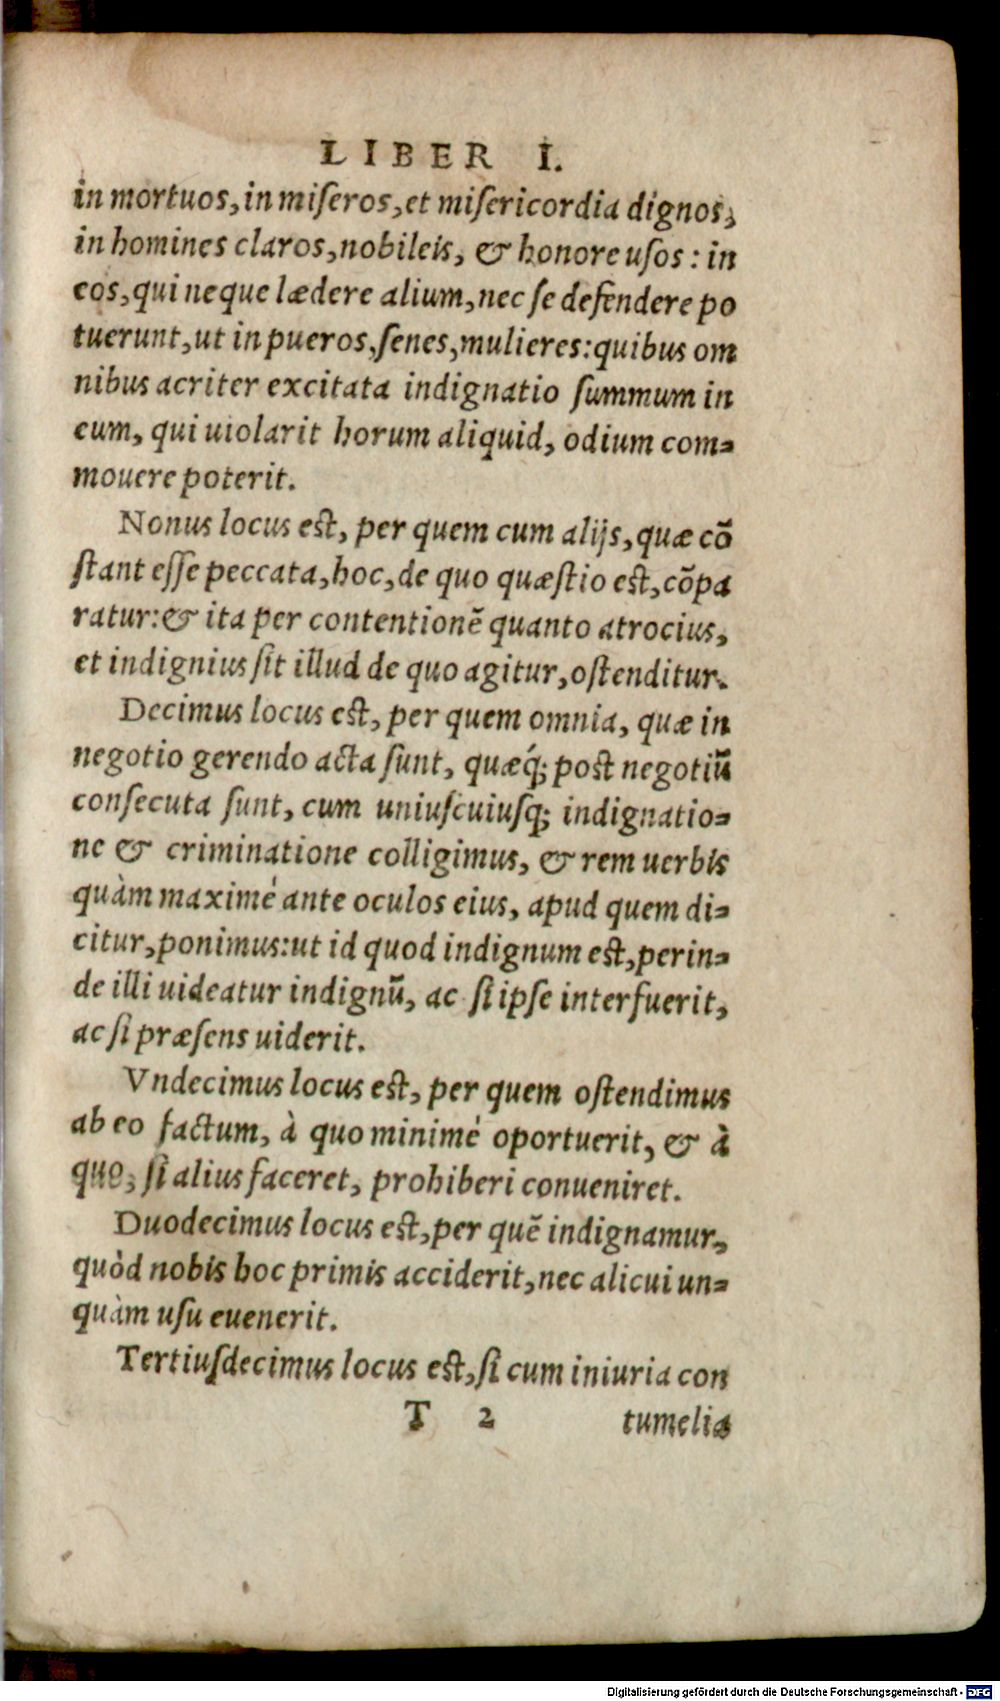 LIBER I.
in mortuos, in miſeros, et miſericordia dignos,
in homines claros, nobileis, & honore uſos: in
eos, qui neque lædere alium, nec ſe defendere po
tuerunt, ut in pueros, ſenes, mulieres: quibus om
nibus acriter excitata indignatio ſummum in
eum, qui uiolarit horum aliquid, odium com⸗
mouere poterit.
Nonus locus eſt, per quem cum alijs, quæ cō
ſtant eſſe peccata, hoc, de quo quæſtio eſt, cōpa
ratur: & ita per contentionē quanto atrocius,
et indignius ſit illud de quo agitur, oſtenditur.
Decimus locus eſt, per quem omnia, quæ in
negotio gerendo acta ſunt, quæq́; poſt negotiū
conſecuta ſunt, cum uniuſcuiuſq; indignatio⸗
ne & criminatione colligimus, & rem uerbis
quàm maximé ante oculos eius, apud quem di⸗
citur, ponimus: ut id quod indignum eſt, perin⸗
de illi uideatur indignū, ac ſi ipſe interfuerit,
ac ſi præſens uiderit.
Vndecimus locus eſt, per quem oſtendimus
ab eo factum, à quo minimé oportuerit, & à
quo, ſi alius faceret, prohiberi conueniret.
Duodecimus locus eſt, per quē indignamur,
quòd nobis hoc primis acciderit, nec alicui un⸗
quàm uſu euenerit.
Tertiuſdecimus locus eſt, ſi cum iniuria con
T 2 tumelia
Digitalisierung gefördert durch die Deutsche Forschungsgemeinschaft - DFG